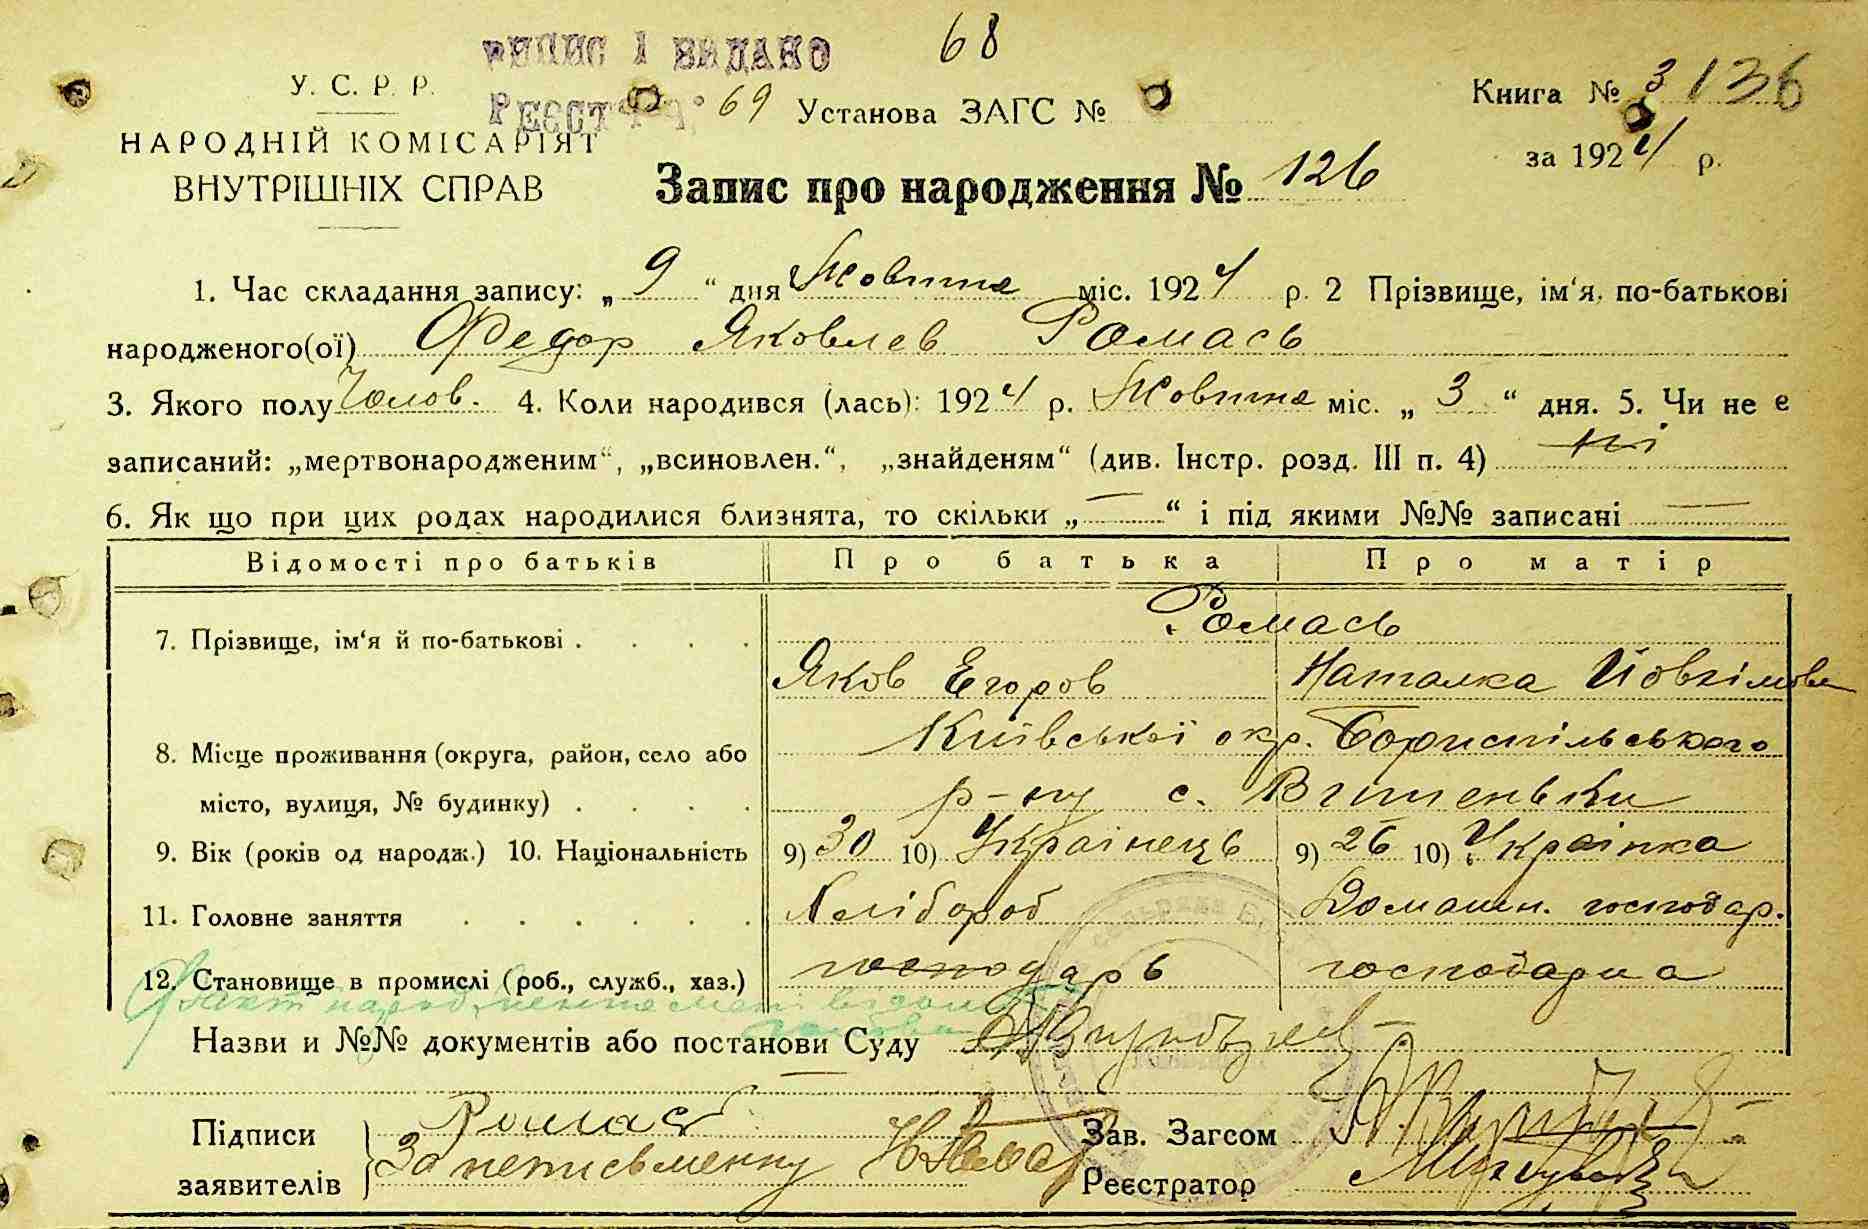 68
ВИПИС І ВИДАНО
У. С. Р. Р.
РЕЄСТР 69 Установа ЗАГС №
Книга № 3 136
НАРОДНІЙ КОМІСАРІЯТ
ВНУТРІШНІХ СПРАВ
за 1924 р.
Запис про народження № 126
1. Час складання запису: „ 9 “ дня Жовтня міс. 1924 р. 2 Прізвище, ім‘я, по-батькові
народженого(ої) Федор Яковлев Ромась
3. Якого полу Чолов. 4. Коли народився (лась): 1924 р. Жовтня міс. „ 3 “ дня. 5. Чи не є
записаний: „мертвонародженим“, „всиновлен.“, „знайденям“ (див. Інстр. розд. III п. 4) ні
6. Як що при цих родах народилися близнята, то скільки „ — “ і під якими №№ записані —
Відомості про батьків Про батька Про матір
Ромась
7. Прізвище, ім‘я й по-батькові . . . .
Яков Егоров Наталка Йовхімова
Київської окр. Бориспільського
8. Місце проживання (округа, район, село або
р-ну с. Вишеньки
місто, вулиця, № будинку) . . . .
9. Вік (років од народж.) 10. Національність 9) 30 10) Українець 9) 26 10) Українка
11. Головне заняття . . . . . . Хлібороб Домашн. господар.
12. Становище в промислі (роб., служб., хаз.) господарь господарка
Факт народження мені відом
Назви и №№ документів або постанови Суду
Підписи
заявителів
Ромась
За неписьменну
Зав. Загсом
Реєстратор